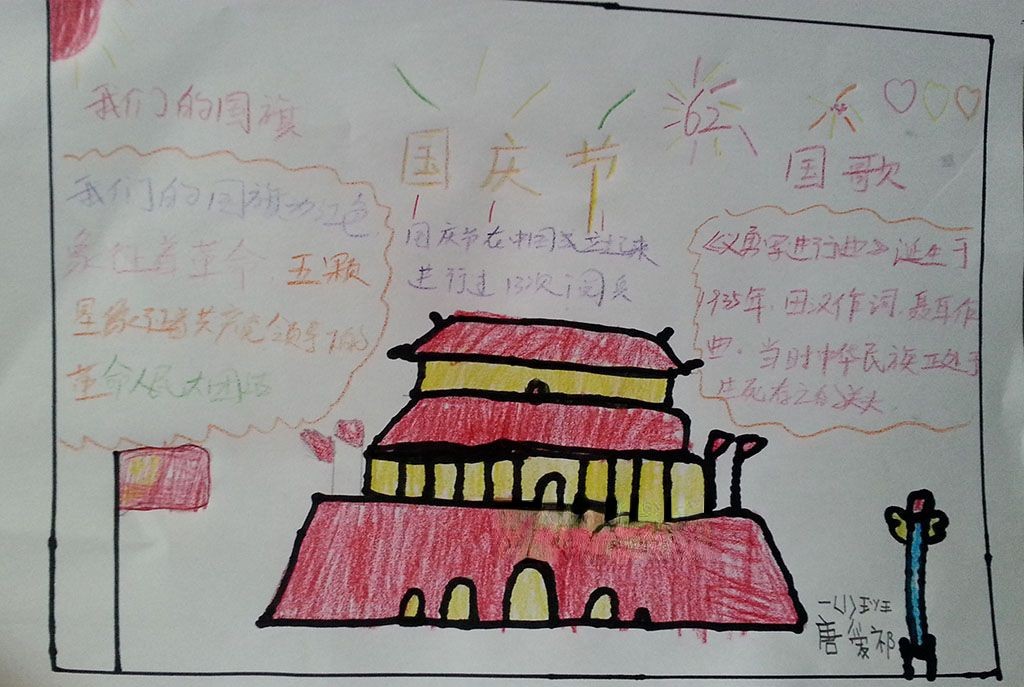 我们的国旗
我们的国旗为红色
象征着革命.五颗
星象征着共产党领导下的
革命人民大团结
国庆节
国庆节在中国成立起来
进行过13次阅兵
62
国歌
《义勇军进行曲》诞生于
1935年.田汉作词.聂耳作
曲.当时中华民族正处于
生死存亡的关头.
一(1)班
唐爱祁